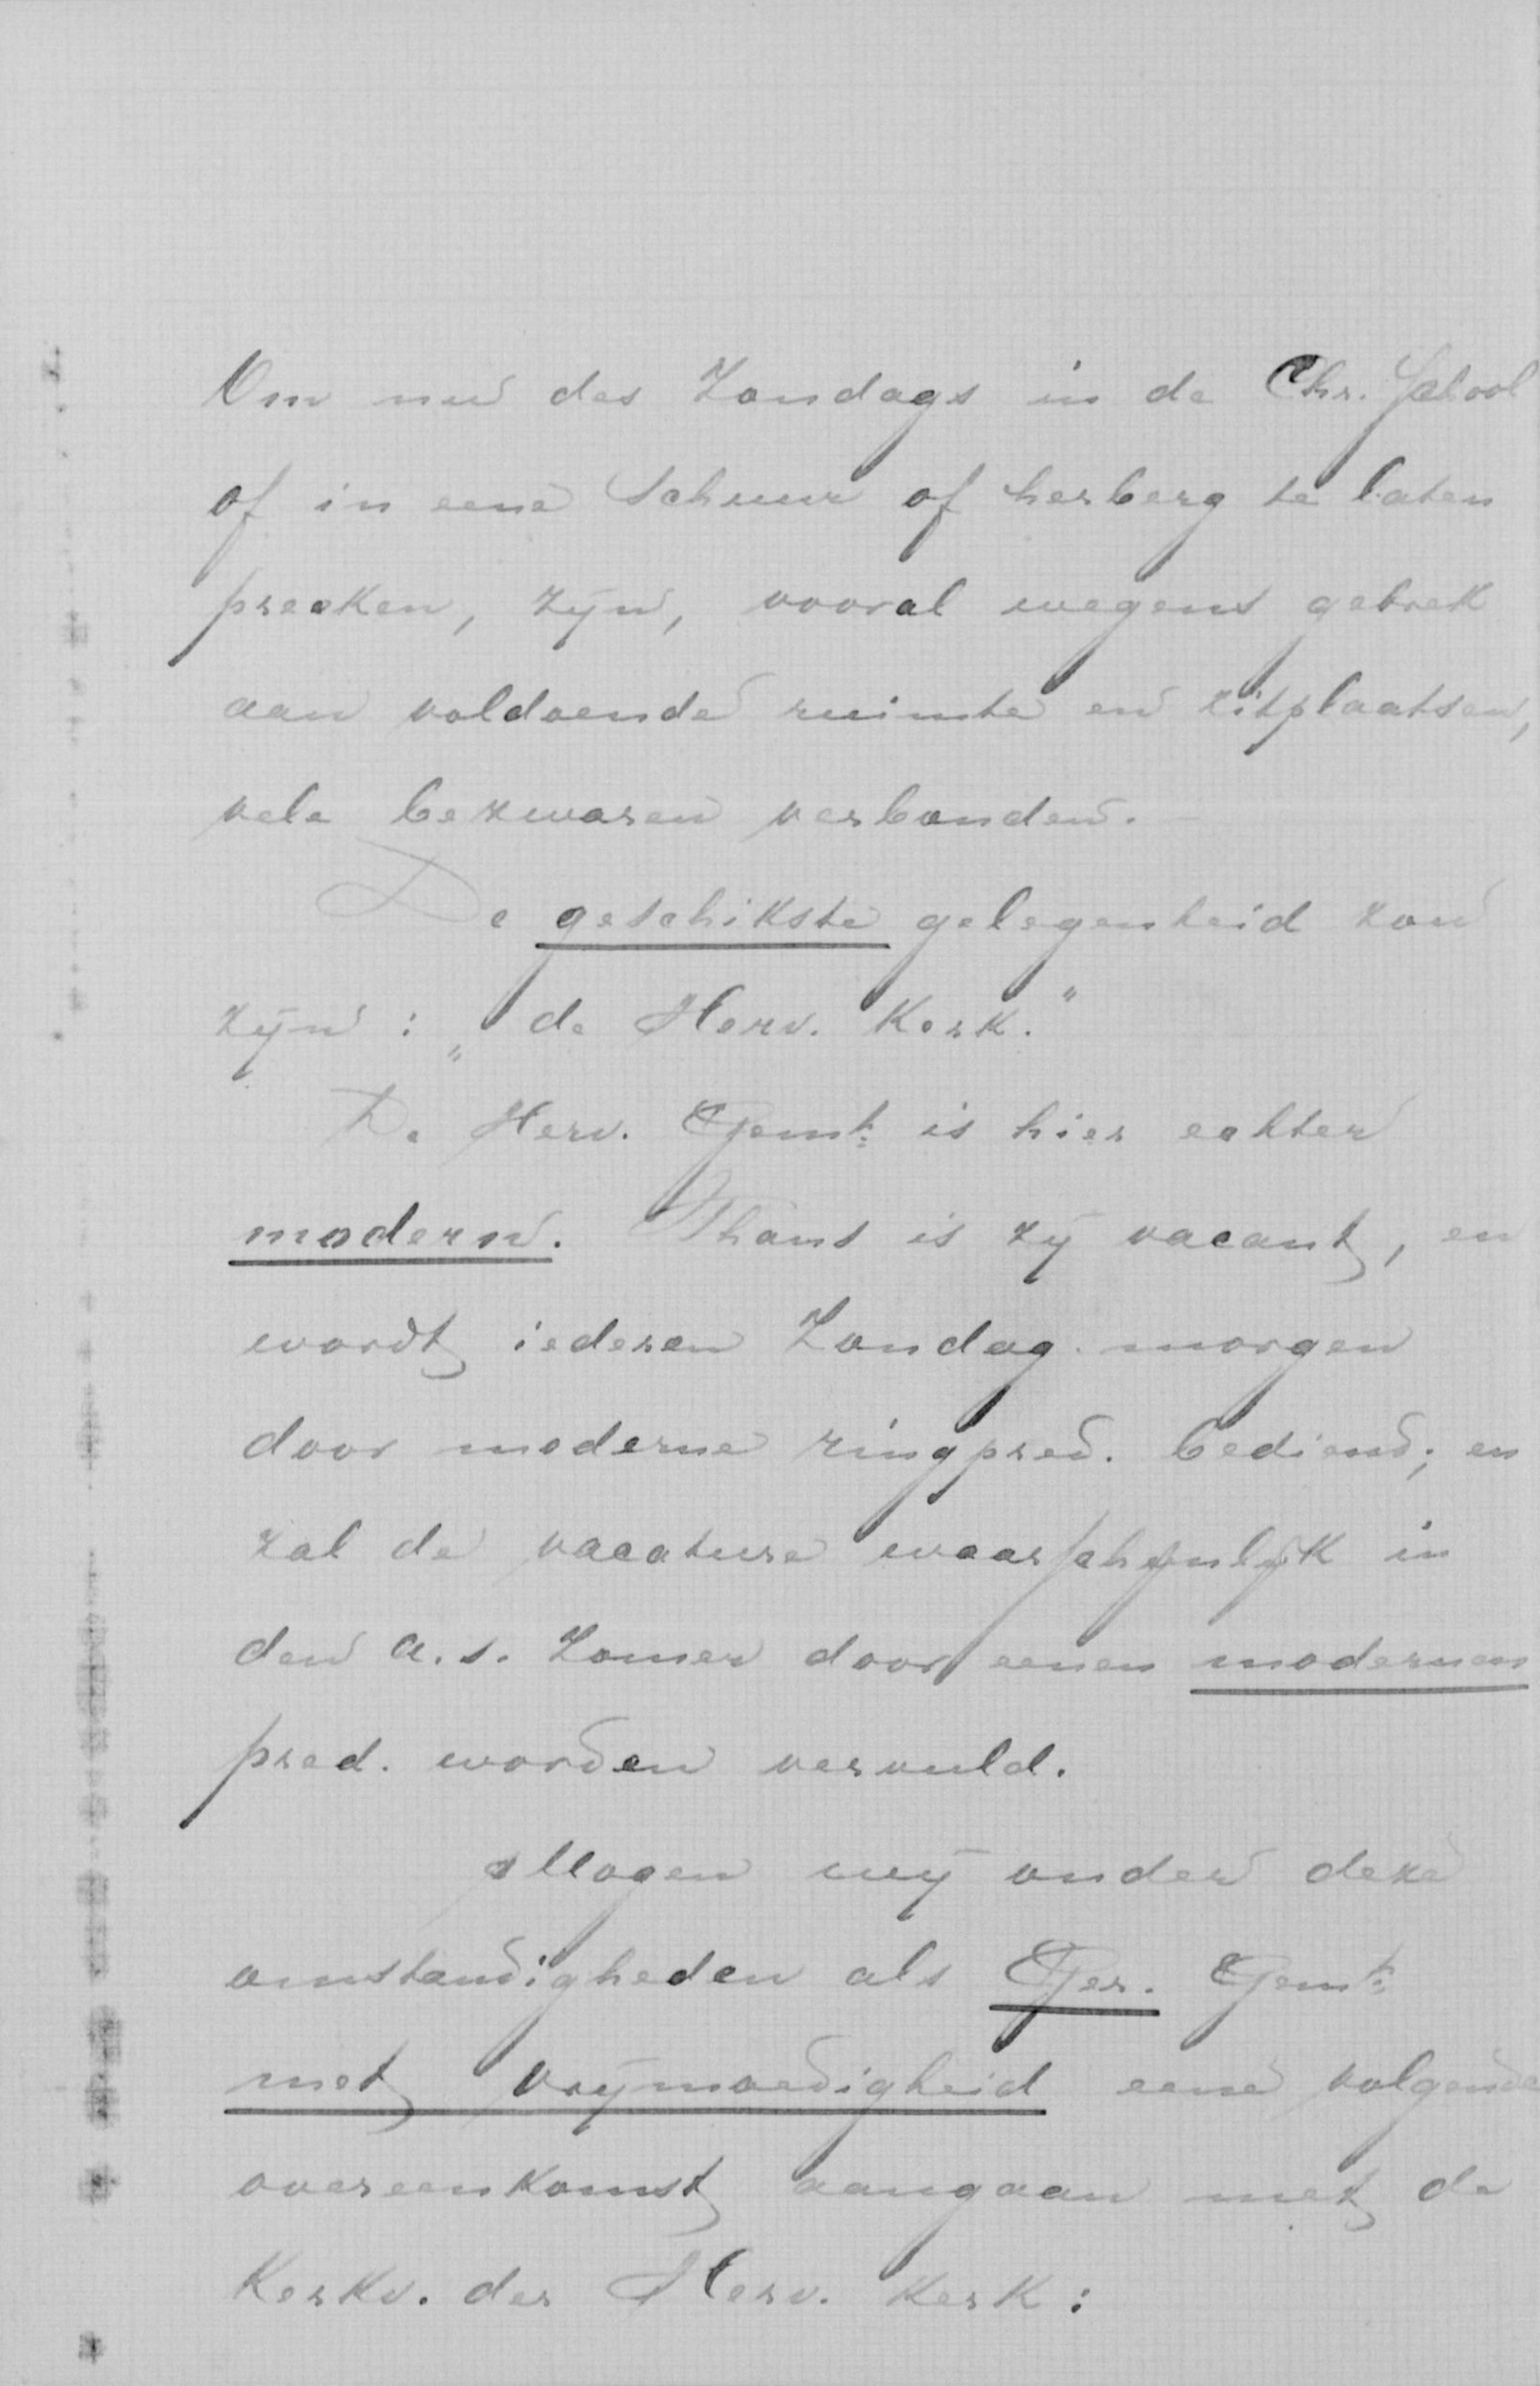 Om nu des Zondags in de Chr. School
of in eene Schuur of herberg te laten
preeken, zijn, vooral wegens gebrek
aan voldoende ruimte en zitplaatsen,
vele bezwaren verbonden.
De geschikste gelegenheid zou
zijn : „ de Herv. Kerk.”
De Herv. Gemte is hier echter
modern. Thans is zij vacant, en
wordt iederen Zondag morgen
door moderne ringpred. bediend; en
zal de vacature waarschijnlijk in
den a.s. Zomer door eenen modernen
pred. worden vervuld.
Mogen wij onder deze
omstandigheden als Ger. Gemte
met vrijmoedigheid eene volgende
overeenkomst aangaan met de
Kerkv. der Herv. Kerk :